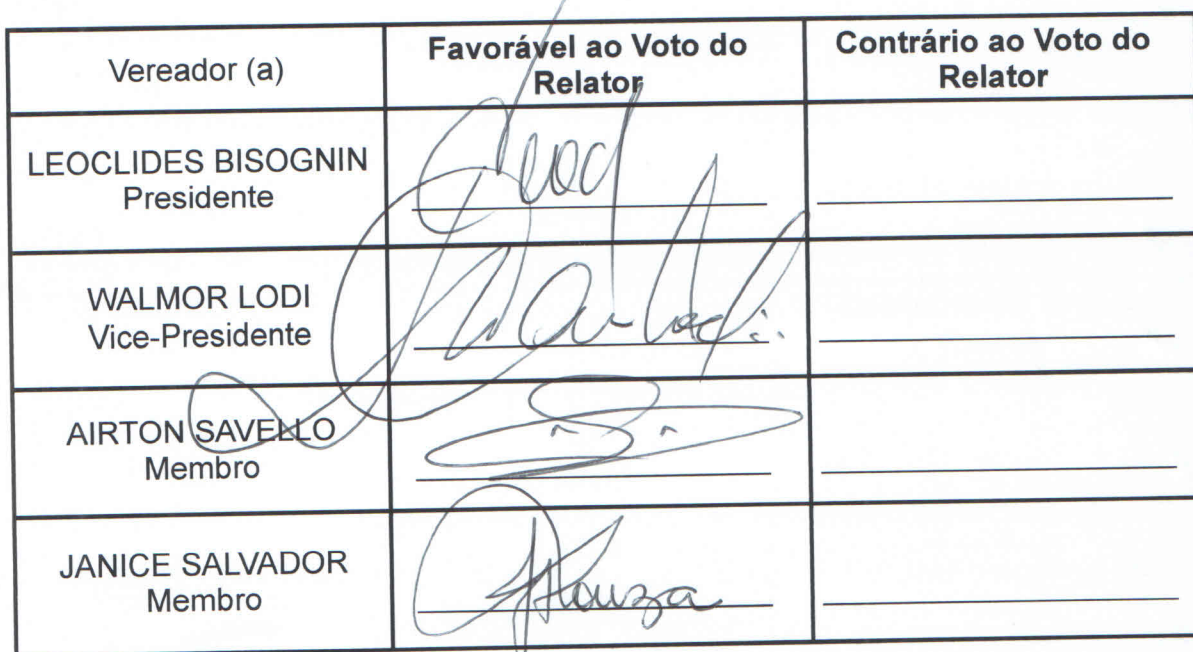 Vereador (a)
Favorável ao Voto do
Relator
Contrário ao Voto do
Relator
LEOCLIDES BISOGNIN
Presidente
WALMOR LODI
Vice-Presidente
AIRTON SAVELLO
Membro
JANICE SALVADOR
Membro